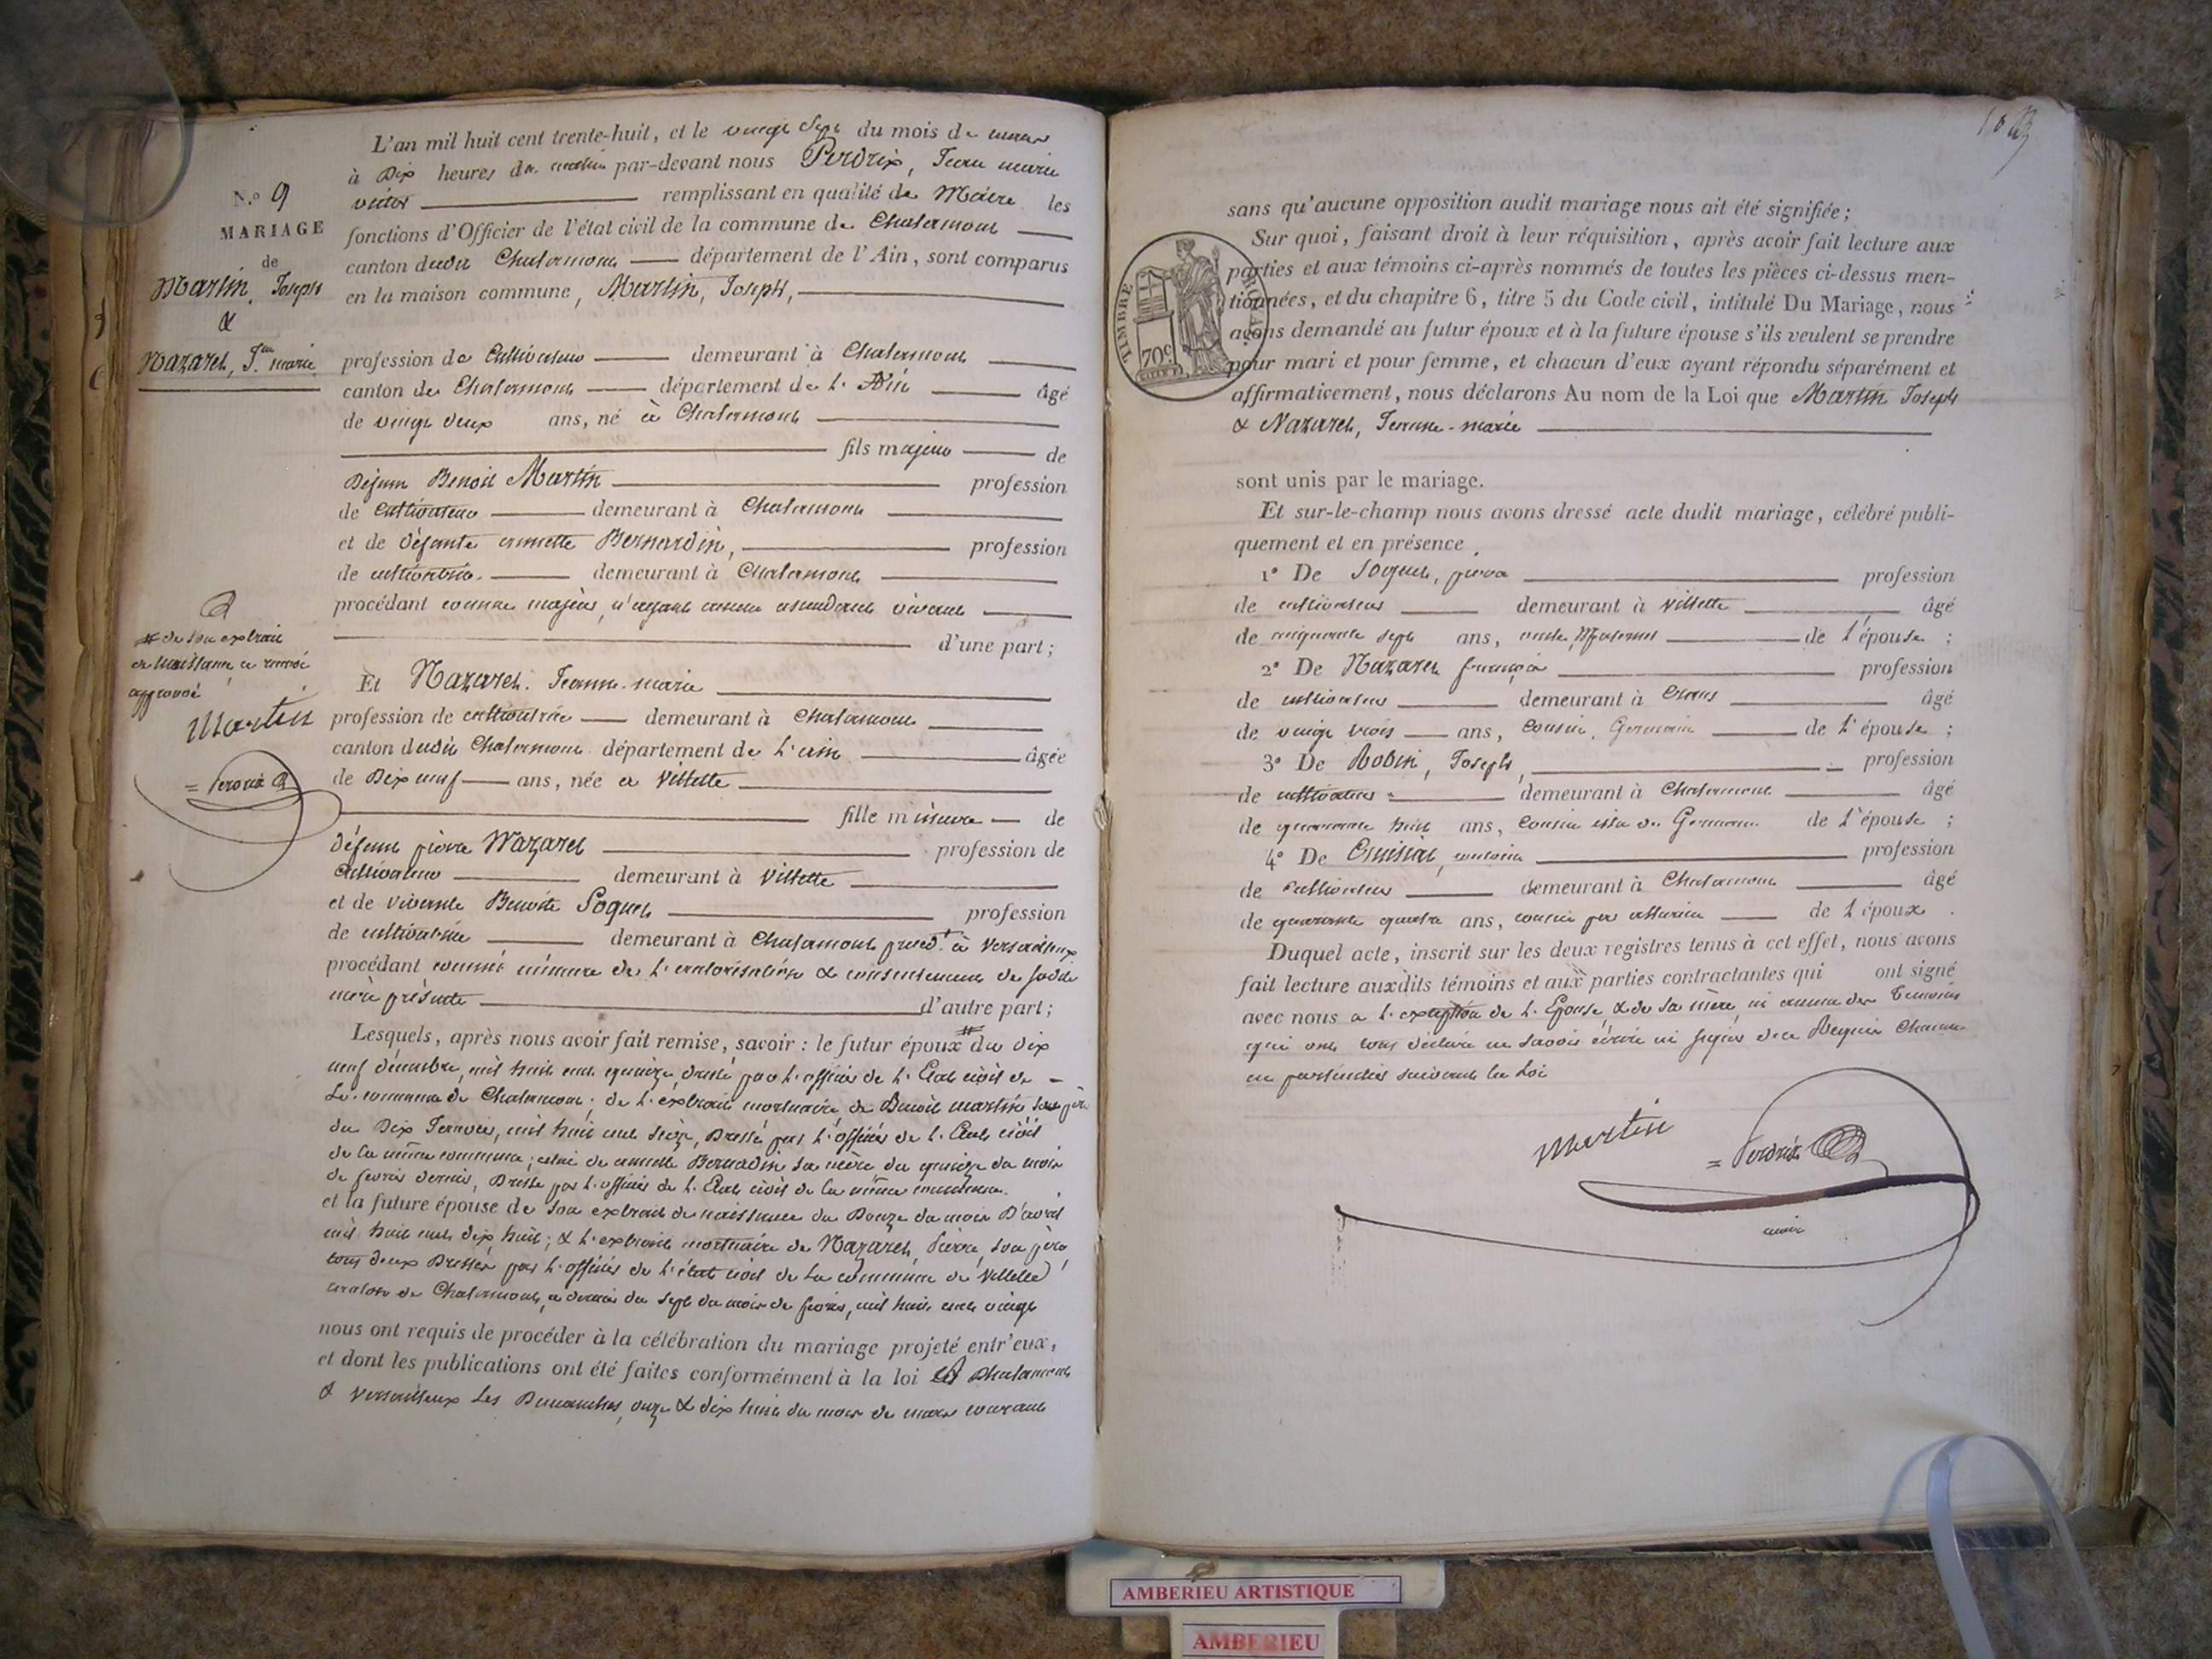 L'an mil huit cent trente-huit, et le vingt Sept du mois de mars
à Dix heures du matin par-devant nous Perdrix, Jean marie
victor remplissant en qualité de Maire les
fonctions d'Officier de l'état civil de la commune de Chalamont
canton dudit Chalamont département de l'Ain, sont comparus
en la maison commune, Martin, Joseph,
N.º 9
MARIAGE
de
Martin, Joseph
&
Nazaret, J.ne marie
profession de Cultivateur demeurant à Chalamont
canton de Chalamont département de l'Ain âgé
de vingt deux ans, né à Chalamont
fils majeur de
Défunt Benoit Martin profession
de cultivateur demeurant à Chalamont
et de défunte annette Bernardin, profession
de cultivatrice demeurant à Chalamont
procédant comme majeur, n'ayant aucun ascendant vivant
d'une part;
# de son extrait
de naissance, ce renvoi
approuvé
Martin
= Perdrix
Et Nazaret, Jeanne-marie
profession de cultivatrice demeurant à Chalamont
canton dudit Chalamont département de l'ain âgée
de Dix neuf ans, née à Villette
fille mineure de
défunt pierre Nazaret profession de
Cultivateur demeurant à Villette
et de vivante Benoite Soquet profession
de cultivatrice demeurant à Chalamont précéd.t à Versailleux
procédant comme mineure de l'autorisation & consentement de sadite
mère présente d'autre part;
Lesquels, après nous avoir fait remise, savoir : le futur époux # du dix
neuf décembre, mil huit cent quinze, dressé par l'officier de l'Etat civil de
La commune de Chalamont; de l'extrait mortuaire de Benoit martin son père
du Dix Janvier, mil huit cent seize, Dressé par l'officier de l'Etat civil
de la même commune; celui de annette Bernardin sa mère du quinze du mois
de fevrier dernier, Dressé par l'officier de l'Etat civil de la même commune.
et la future épouse de son extrait de naissance du Douze du mois D'avril
mil huit cent dix huit; & l'extrait mortuaire de Nazaret, Pierre, son père,
tous deux Dressés par l'officier de l'état civil de La commune de Villette
canton de Chalamont, ce dernier du Sept du mois de fevrier, mil huit cent vingt
nous ont requis de procéder à la célébration du mariage projeté entr'eux,
et dont les publications ont été faites conformément à la loi à Chalamont
& Versailleux Les Dimanches, onze & dix huit du mois de mars courant
sans qu'aucune opposition audit mariage nous ait été signifiée;
Sur quoi, faisant droit à leur réquisition, après avoir fait lecture aux
parties et aux témoins ci-après nommés de toutes les pièces ci-dessus men-
tionnées, et du chapitre 6, titre 5 du Code civil, intitulé Du Mariage, nous
avons demandé au futur époux et à la future épouse s'ils veulent se prendre
pour mari et pour femme, et chacun d'eux ayant répondu séparément et
affirmativement, nous déclarons Au nom de la Loi que Martin Joseph
& Nazaret, Jeanne-marie
TIMBRE ROYAL
70c
sont unis par le mariage.
Et sur-le-champ nous avons dressé acte dudit mariage, célébré publi-
quement et en présence
1º De Soquet, pierre profession
de cultivateur demeurant à Villette âgé
de cinquante sept ans, oncle Maternel de l'épouse ;
2º De Nazaret françois profession
de cultivateur demeurant à Crans âgé
de vingt trois ans, Cousin Germain de l'épouse ;
3º De Robin, Joseph, profession
de cultivateur demeurant à Chalamont âgé
de quarante huit ans, Cousin issu de Germain de l'épouse ;
4º De profession
de cultivateur demeurant à Chalamont âgé
de quarante quatre ans, cousin par de l'époux .
Duquel acte, inscrit sur les deux registres tenus à cet effet, nous avons
fait lecture auxdits témoins et aux parties contractantes qui ont signé
avec nous à l'exception de l'Epouse, & de sa mère, ni aucun des Témoins
qui ont tous déclaré ne savoir écrire ni signer de ce Requis Chacun
en particulier suivant la Loi
Martin
= Perdrix
maire
AMBERIEU ARTISTIQUE
AMBERIEU